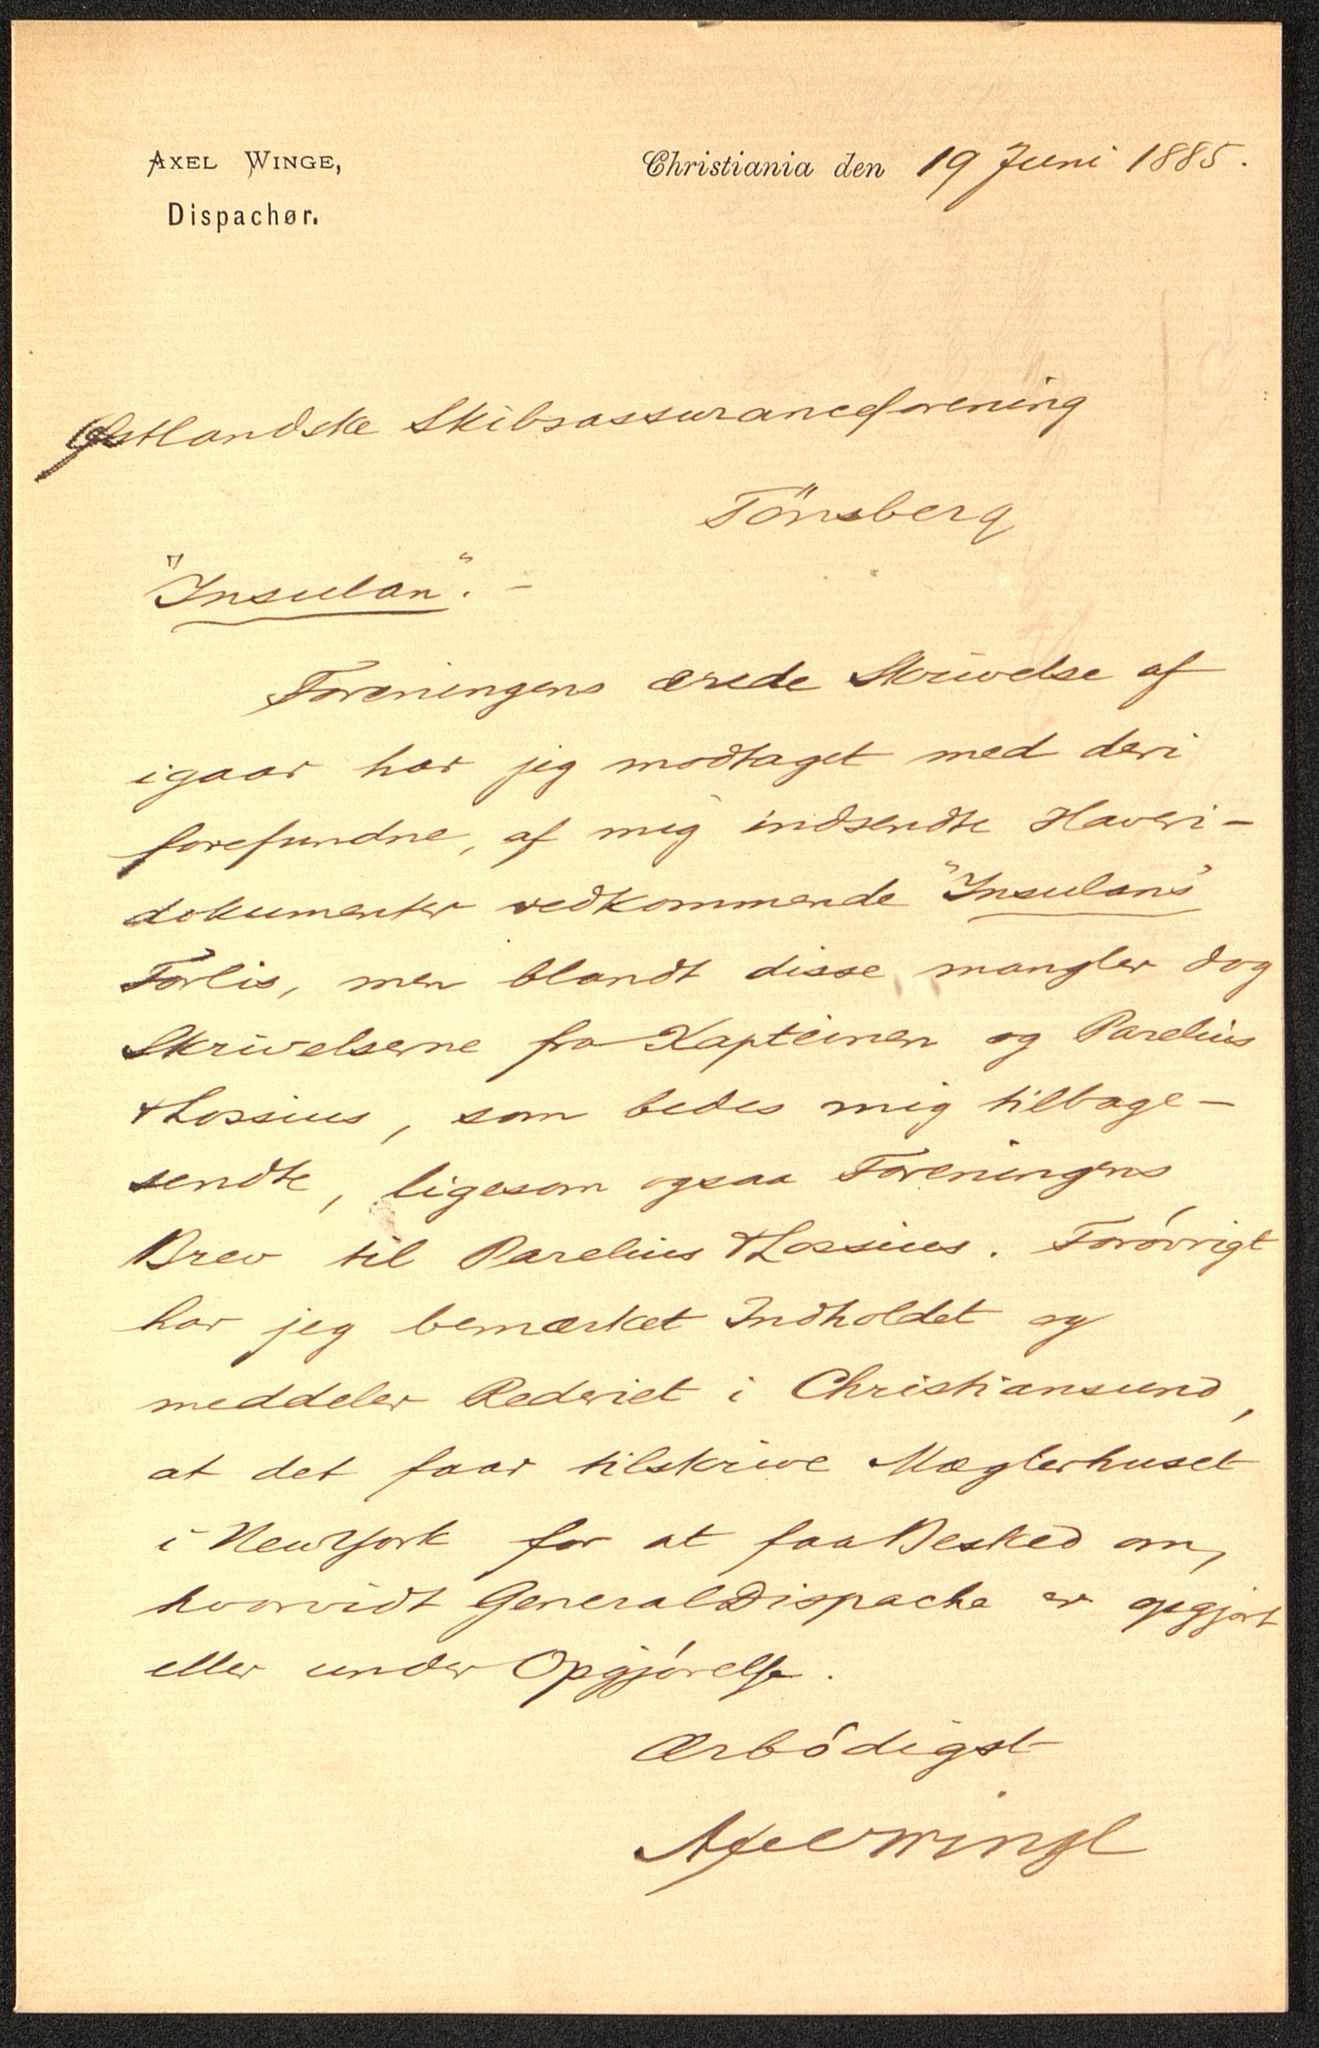 AXEL WINGE,
Dispachør.
Christiania den 19 Juni 1885.
Østlandske Skibsassuranceforening
Tönsberg
"Insulan". –
Foreningens ærede Skrivelse af
igaar har jeg modtaget med deri
forefundne, af mig indsendte Haveri-
dokumenter vedkommende "Insulans"
Forlis, men blandt disse mangler dog
Skrivelserne fra Kapteinen og Parelius
& Lossius, som bedes mig tilbage-
sendte, ligesom ogsaa Foreningens
Brev til Parelius & Lossius. Forøvrigt
har jeg bemærket Indholdet og
meddeler Rederiet i Christiansund,
at det faar tilskrive Mæglerhuset
i New York for at faa Besked om,
hvorvidt General Dispache er opgjort
eller under Opgjørelse.
Ærbødigst
Axel Winge